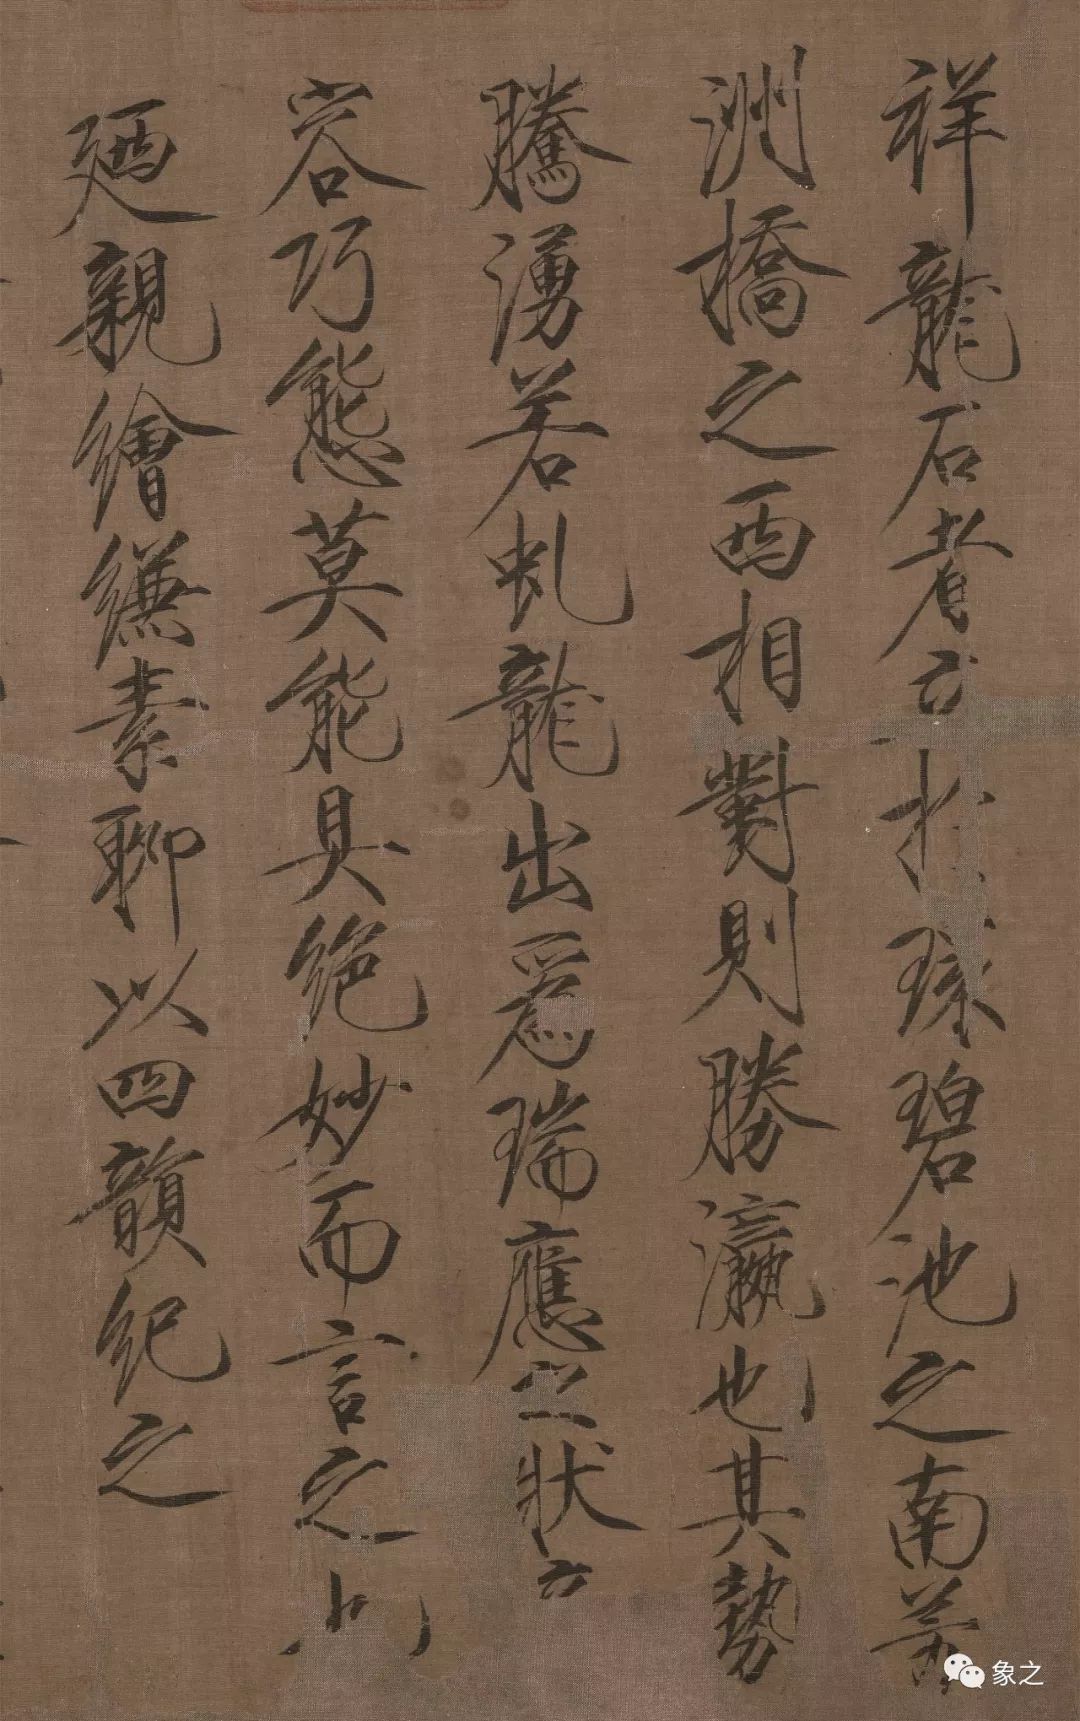 祥龍石者立於環碧池之南芳
洲橋之西相對則勝瀛也其勢
騰湧若虬龍出爲瑞應之狀
容巧態莫能具絶妙而言之也
廼親繪縑素聊以四韻紀之
象之